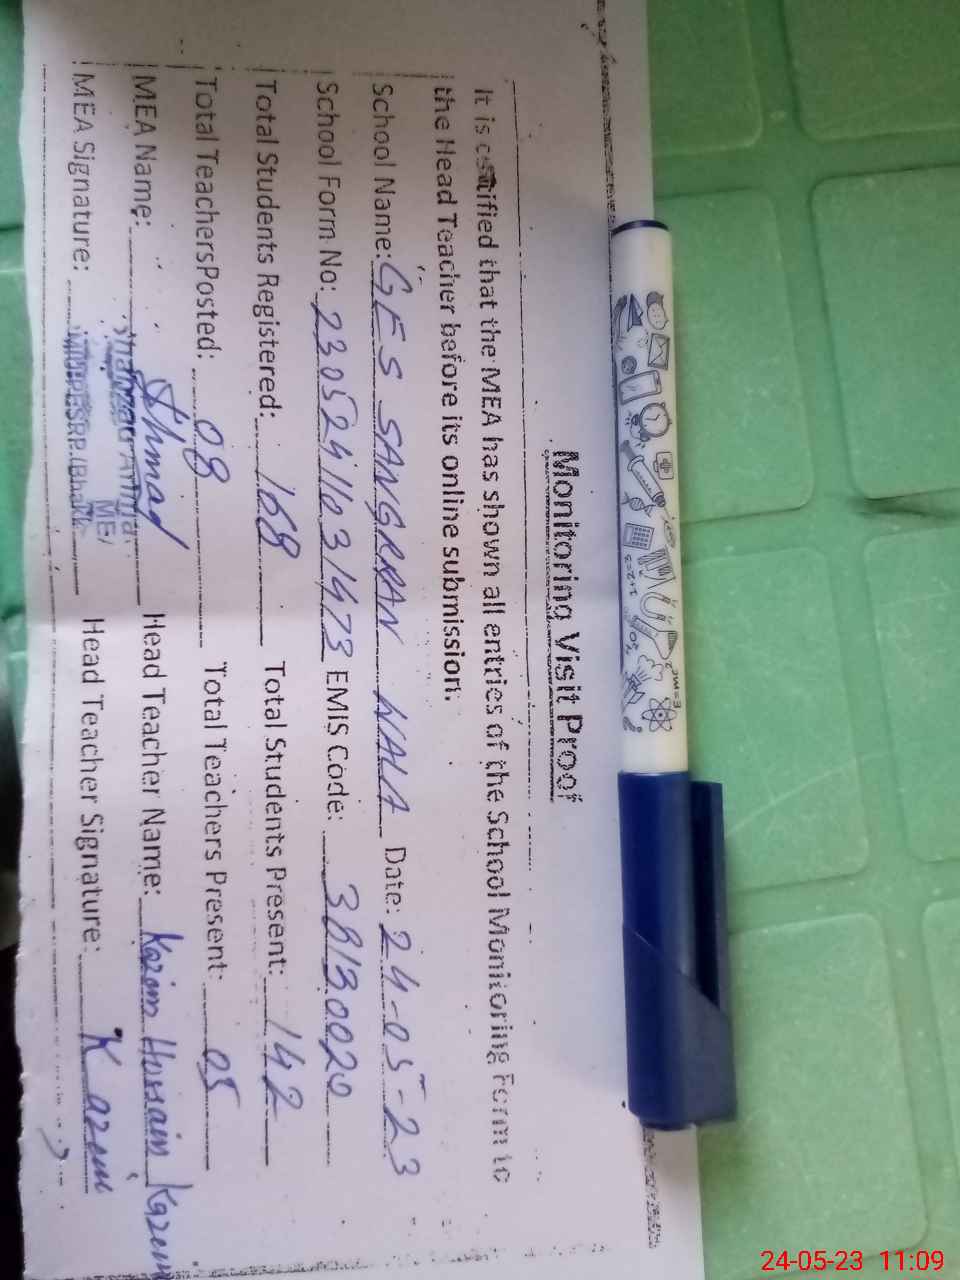 Monitoring Visit Proof
It is certified that the MEA has shown all entries of the School Monitoring Form to
the Head Teacher before its online submission.
School Name: GES SANGRRAN WALA Date: 24-05-23
School Form No: 23052411031473 EMIS Code: 38130020
Total Students Registered: 168 Total Students Present: 142
Total TeachersPosted: 08 Total Teachers Present: 05
MEA Name: Ahmad Head Teacher Name: Kazim Hussain Kazim
MEA Signature: Head Teacher Signature: Kazim
MEA
E=mc²
2+2=5
24-05-23 11:09